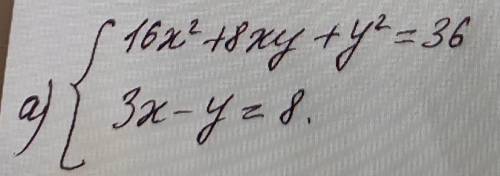 а) { 16x² + 8xy + y² = 36
3x - y = 8.